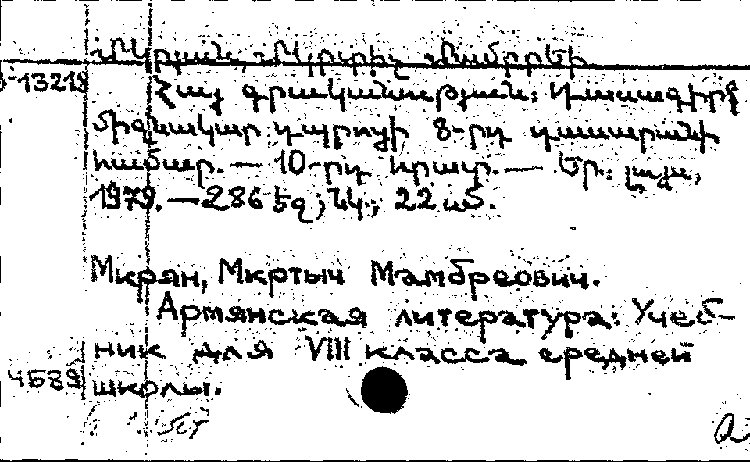 Մկրյան, Մկրտիչ Մամբրեի
Յ-13219
Հայ գրականություն: Դասագիրք
միջնակարգ դպրոցի 8-րդ դասարանի
համար. — 10-րդ հրատ. — Եր.: Լույս,
1979. — 286 էջ; նկ.; 22 սմ.
Мкрян, Мкртыч Мамбреович.
Армянская литература: Учеб-
ник для VIII класса средней
4589 школы.